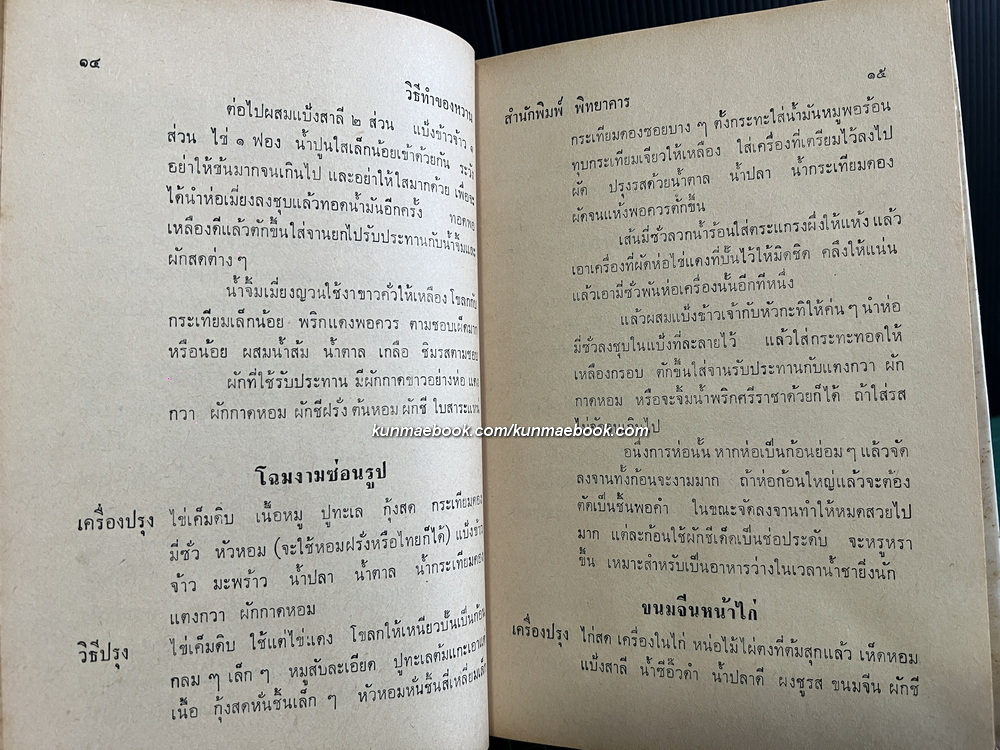 ๑๔
วิธีทำของหวาน
ต่อไปผสมแป้งสาลี ๒ ส่วน แป้งข้าวจ้าว ๑
ส่วน ไข่ ๑ ฟอง น้ำปูนใสเล็กน้อยเข้าด้วยกัน ระวัง
อย่าให้ข้นมากจนเกินไป และอย่าให้ใสมากด้วย เพื่อจะ
ได้นำห่อเมี่ยงลงชุบแล้วทอดน้ำมันอีกครั้ง ทอดพอ
เหลืองดีแล้วตักขึ้นใส่จานยกไปรับประทานกับน้ำจิ้มและ
ผักสดต่าง ๆ
น้ำจิ้มเมี่ยงญวนใช้งาขาวคั่วให้เหลือง โขลกกับ
กระเทียมเล็กน้อย พริกแดงพอควร ตามชอบเผ็ดมาก
หรือน้อย ผสมน้ำส้ม น้ำตาล เกลือ ชิมรสตามชอบ
ผักที่ใช้รับประทาน มีผักกาดขาวอย่างห่อ แตง
กวา ผักกาดหอม ผักชีฝรั่ง ต้นหอม ผักชี ใบสาระแหน่
โฉมงามซ่อนรูป
เครื่องปรุง ไข่เค็มดิบ เนื้อหมู ปูทะเล กุ้งสด กระเทียมดอง
มี่ซั่ว หัวหอม (จะใช้หอมฝรั่งหรือไทยก็ได้) แป้งข้าว
จ้าว มะพร้าว น้ำปลา น้ำตาล น้ำกระเทียมดอง
แตงกวา ผักกาดหอม
วิธีปรุง ไข่เค็มดิบ ใช้แต่ไข่แดง โขลกให้เหนียวปั้นเป็นก้อน
กลม ๆ เล็ก ๆ หมูสับละเอียด ปูทะเลต้มแกะเอาแต่
เนื้อ กุ้งสดหั่นชิ้นเล็ก ๆ หัวหอมหั่นชิ้นสี่เหลี่ยมเล็ก
๑๕
สำนักพิมพ์ พิทยาคาร
กระเทียมดองซอยบาง ๆ ตั้งกระทะใส่น้ำมันหมูพอร้อน
ทุบกระเทียมเจียวให้เหลือง ใส่เครื่องที่เตรียมไว้ลงไป
ผัด ปรุงรสด้วยน้ำตาล น้ำปลา น้ำกระเทียมดอง
ผัดจนแห้งพอควรตักขึ้น
เส้นมี่ซั่วลวกน้ำร้อนใส่ตระแกรงผึ่งให้แห้ง แล้ว
เอาเครื่องที่ผัดห่อไข่แดงที่ปั้นไว้ให้มิดชิด คลึงให้แน่น
แล้วเอามี่ซั่วพันห่อเครื่องนั้นอีกทีหนึ่ง
แล้วผสมแป้งข้าวเจ้ากับหัวกะทิให้ค่น ๆ นำห่อ
มี่ซั่วลงชุบในแป้งที่ละลายไว้ แล้วใส่กระทะทอดให้
เหลืองกรอบ ตักขึ้นใส่จานรับประทานกับแตงกวา ผัก
กาดหอม หรือจะจิ้มน้ำพริกศรีราชาด้วยก็ได้ ถ้าใส่รส
kunmaebook.com/kunmaebook.com
อนึ่งการห่อนั้น หากห่อเป็นก้อนย่อม ๆ แล้วจัด
ลงจานทั้งก้อนจะงามมาก ถ้าห่อก้อนใหญ่แล้วจะต้อง
ตัดเป็นชิ้นพอคำ ในขณะจัดลงจานทำให้หมดสวยไป
มาก แต่ละก้อนใช้ผักชีเด็ดเป็นช่อประดับ จะหรูหรา
ขึ้น เหมาะสำหรับเป็นอาหารว่างในเวลาน้ำชายิ่งนัก
ขนมจีนหน้าไก่
เครื่องปรุง ไก่สด เครื่องในไก่ หน่อไม้ไผ่ตงที่ต้มสุกแล้ว เห็ดหอม
แป้งสาลี น้ำซีอิ๊วดำ น้ำปลาดี ผงชูรส ขนมจีน ผักชี